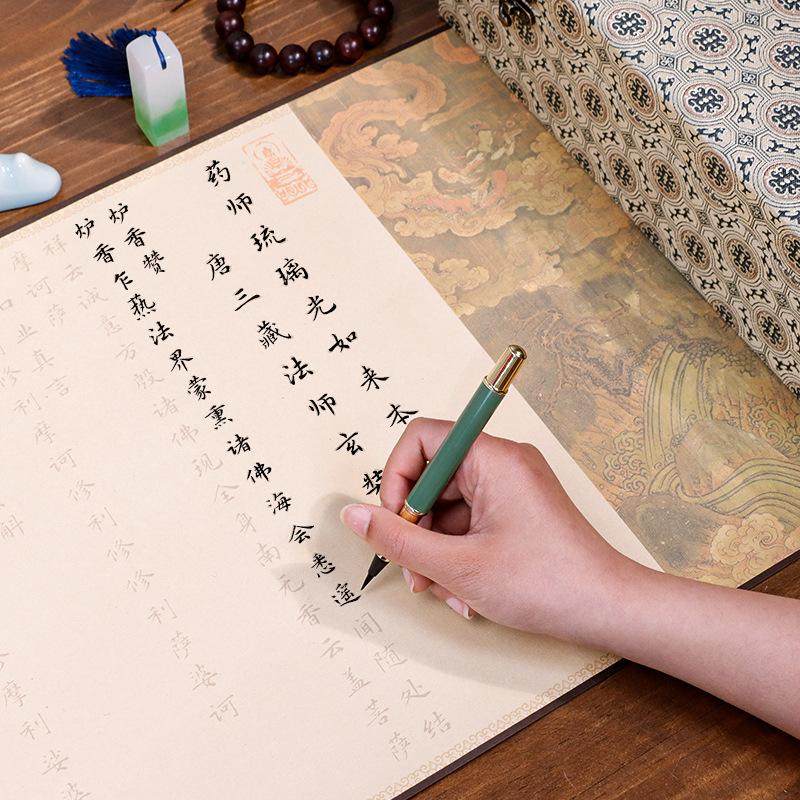 药师琉璃光如来本
唐三藏法师玄奘
炉香赞
炉香乍热法界蒙熏诸佛海会悉遥闻随处结
祥云诚意方殷诸佛现全身南无香云盖菩萨
摩诃萨
口业真言
修利摩诃修利修修利萨婆诃
摩利娑婆